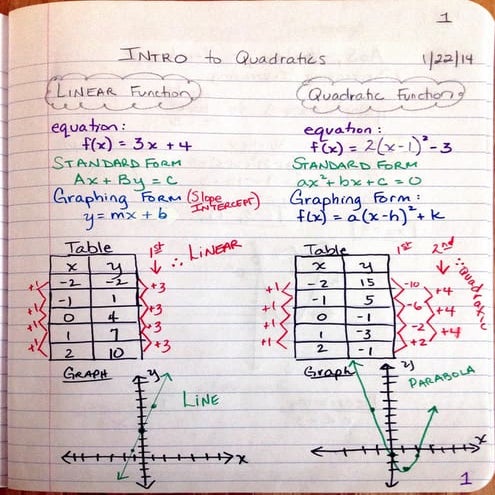 1
INTRO to Quadratics 1/22/14
LINEAR Function
equation:
f(x) = 3x + 4
STANDARD FORM
Ax + By = C
Graphing Form (Slope INTERCEPT)
y = mx + b
Table 1st ∴ LINEAR
x y
-2 -2
-1 1
0 4
1 7
2 10
+1 +1 +1 +1
+3 +3 +3 +3
GRAPH
LINE
y
x
Quadratic Function
equation:
f(x) = 2(x-1)² - 3
STANDARD FORM
ax² + bx + c = 0
Graphing Form:
f(x) = a(x-h)² + k
Table 1st 2nd ∴ Quadratic
x y
-2 15
-1 5
0 -1
1 -3
2 -1
+1 +1 +1 +1
-10 -6 -2 +2
+4 +4 +4
Graph
PARABOLA
y
x
1